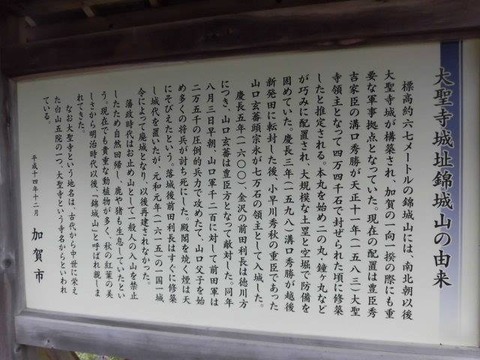 大聖寺城址錦城山の由来
標高約六七メートルの錦城山には、南北朝以後
大聖寺城が構築され、加賀の一向一揆の際にも重
要な軍事拠点となっていた。現在の配置は豊臣秀
吉家臣の溝口秀勝が天正十一年(一五八三)大聖
寺領主となって四万四千石で封ぜられた頃に修築
したと推定される。本丸を始め二の丸、鐘ヶ丸など
が巧みに配置され、大規模な土塁と空堀で防備を
固めていた。慶長三年(一五九八)溝口秀勝が越後
新発田に転封した後、小早川秀秋の重臣であった
山口玄蕃頭宗永が七万石の領主として入城した。
慶長五年(一六〇〇)、金沢の前田利長は徳川方
につき、山口玄蕃は豊臣方となって敵対した。同年
八月三日早朝、山口軍千二百に対して前田軍は
二万五千の圧倒的兵力で攻めたて、山口父子を始
め多くの将兵が討ち死にした。殿閣を焼く煙は天
にそびえたという。落城後前田利長はすぐに修築
し城代を置いたが、元和元年(一六一五)の一国一城
令によって廃城となり、以後再建されなかった。
藩政時代はお止め山として一般人の入山を禁止
したため自然回帰し、鹿や猪も生息していたとい
う。現在でも貴重な動植物が多く、秋の紅葉の美
しさから明治時代以後、「錦城山」と呼ばれ親しま
れてきた。
なお大聖寺という地名は、古代から中世に栄え
た白山五院の一つ、大聖寺という寺名からといわれ
ている。
平成十四年十二月
加賀市